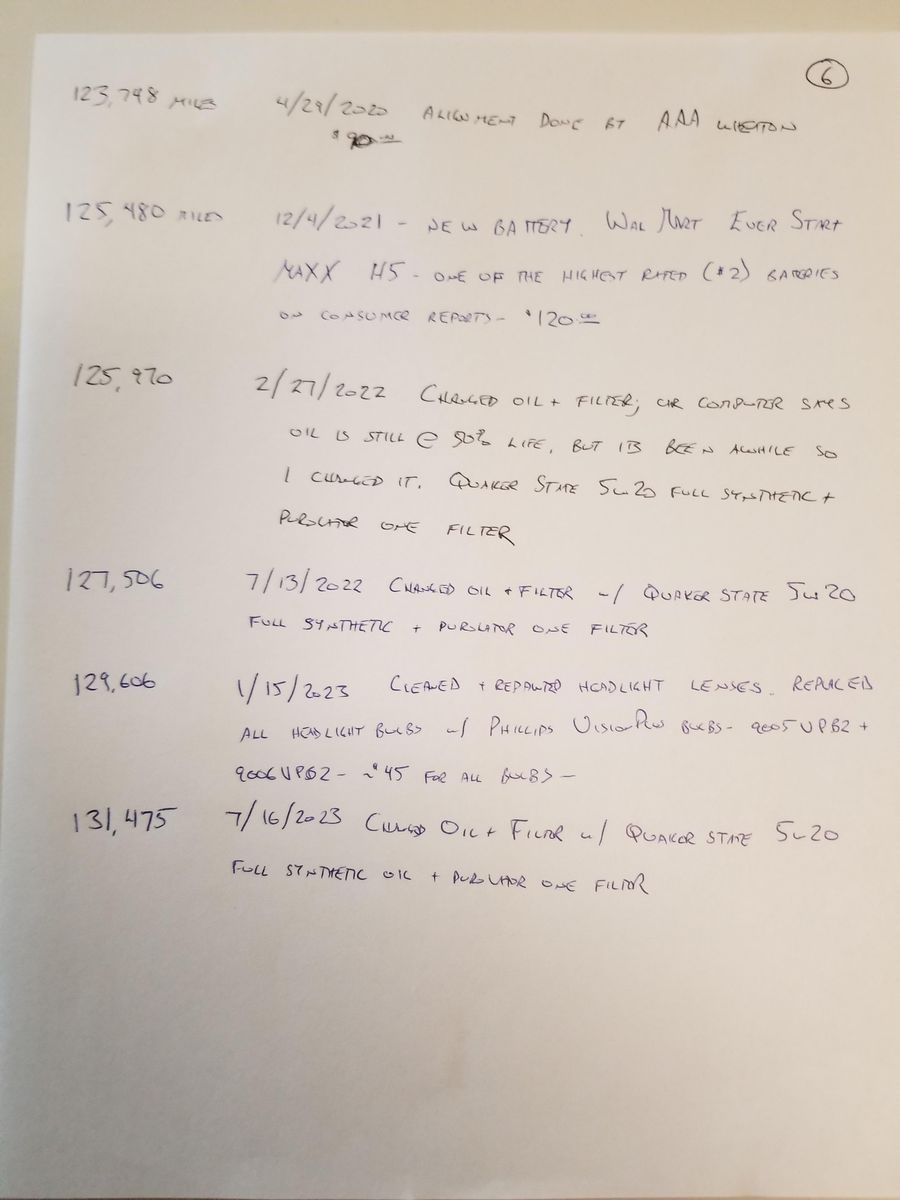 6
123,798 MILES 4/29/2020 ALIGNMENT DONE BY AAA WHEATON
$90.00
125,480 MILES 12/4/2021 - NEW BATTERY. WAL MART EVER START
MAXX H5 - ONE OF THE HIGHEST RATED (#2) BATERIES
ON CONSUMER REPORTS - $120.00
125,970 2/27/2022 CHANGED OIL + FILTER; CAR COMPUTER SAYS
OIL IS STILL @ 50% LIFE, BUT ITS BEEN AWHILE SO
I CHANGED IT. QUAKER STATE 5W20 FULL SYNTHETIC +
PUROLATOR ONE FILTER
127,506 7/13/2022 CHANGED OIL + FILTER W/ QUAKER STATE 5W20
FULL SYNTHETIC + PUROLATOR ONE FILTER
129,606 1/15/2023 CLEANED + REPAINTED HEADLIGHT LENSES. REPLACED
ALL HEADLIGHT BULBS W/ PHILLIPS VISIONPLUS BULBS - 9005VPB2 +
9006VPB2 - ~$45 FOR ALL BULBS -
131,475 7/16/2023 CHANGED OIL + FILTER W/ QUAKER STATE 5W20
FULL SYNTHETIC OIL + PUROLATOR ONE FILTER